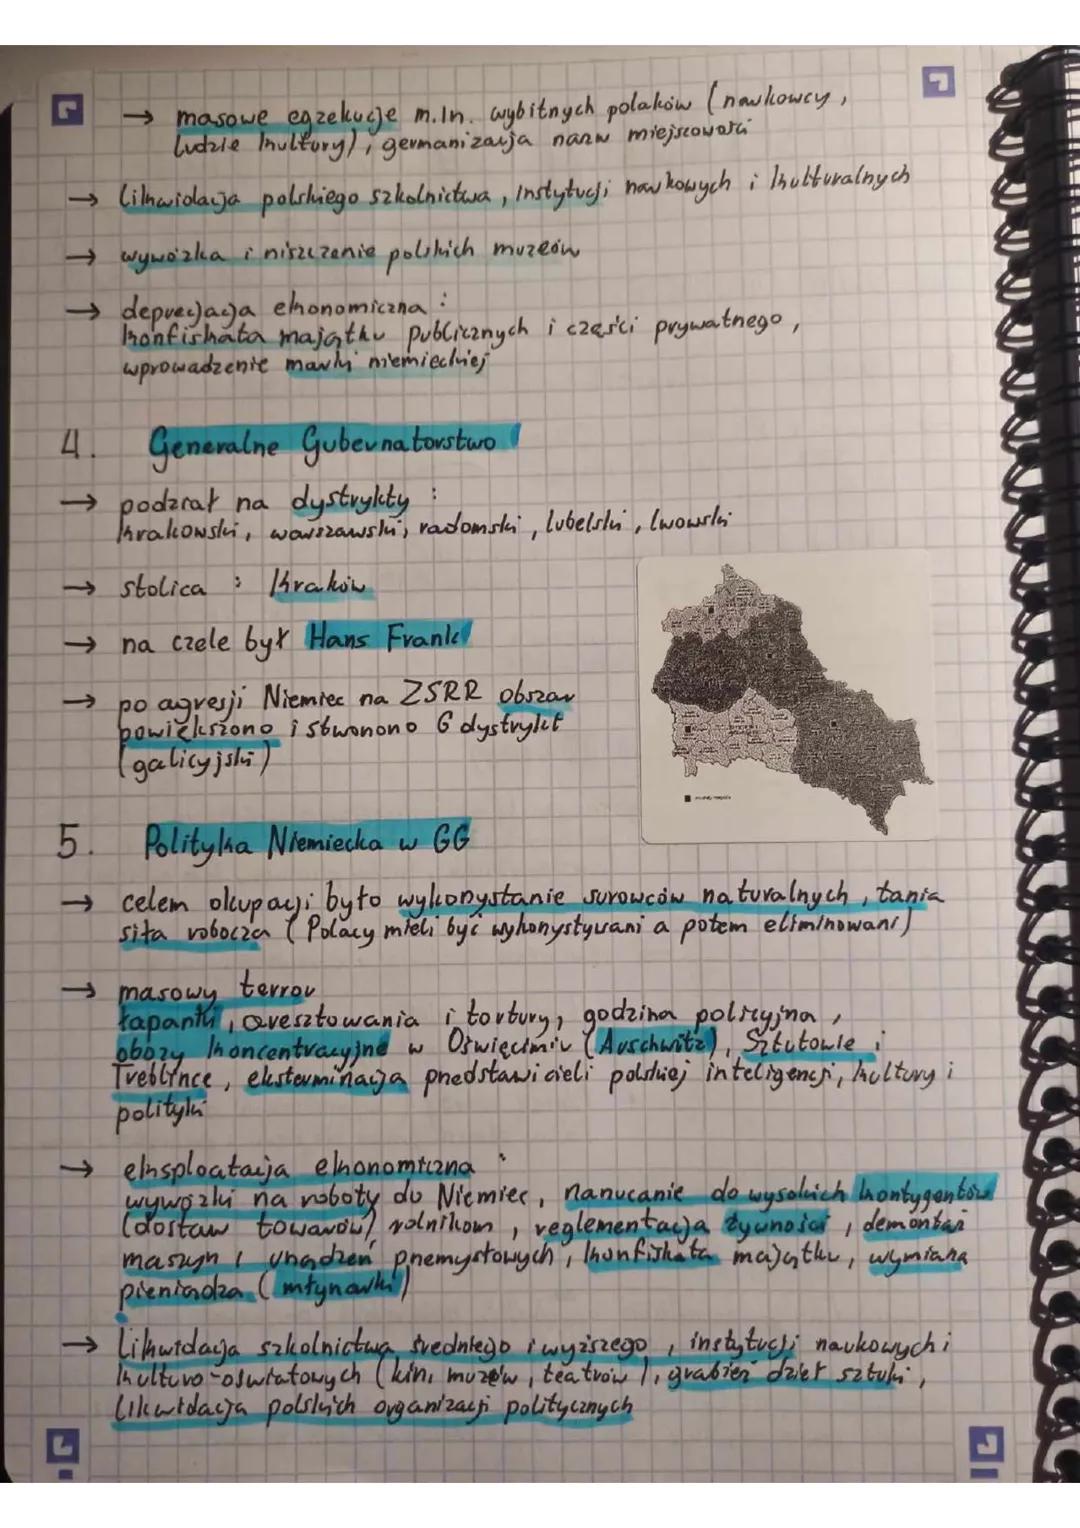 → masowe egzekucje m.in. wybitnych polaków (naukowcy,
ludzie kultury), germanizacja nazw miejscowości
→ likwidacja polskiego szkolnictwa, instytucji naukowych i kulturalnych
→ wywózka i niszczenie polskich muzeów
→ deprecjacja ekonomiczna :
konfiskata majątku publicznych i części prywatnego,
wprowadzenie marki niemieckiej
4. Generalne Gubernatorstwo
→ podział na dystrykty :
krakowski, warszawski, radomski, lubelski, lwowski
→ stolica : Kraków
→ na czele był Hans Frank
→ po agresji Niemiec na ZSRR obszar
powiększono i stworzono 6 dystrykt
(galicyjski)
5. Polityka Niemiecka w GG
→ celem okupacji było wykorzystanie surowców naturalnych, tania
siła robocza (Polacy mieli być wykorzystywani a potem eliminowani)
→ masowy terror
łapanki, aresztowania i tortury, godzina policyjna,
obozy koncentracyjne w Oświęcimiu (Auschwitz), Sztutowie i
Treblince, eksterminacja przedstawicieli polskiej inteligencji, kultury i
polityki
→ eksploatacja ekonomiczna :
wywózki na roboty do Niemiec, narzucanie do wysokich kontygentów
(dostaw towarów) rolnikom, reglementacja żywności, demontaż
maszyn i urządzeń przemysłowych, konfiskata majątku, wymiana
pieniądza (młynarki)
→ likwidacja szkolnictwa średniego i wyższego, instytucji naukowych i
kulturo-oświatowych (kin, muzeów, teatrów), grabież dzieł sztuki,
likwidacja polskich organizacji politycznych